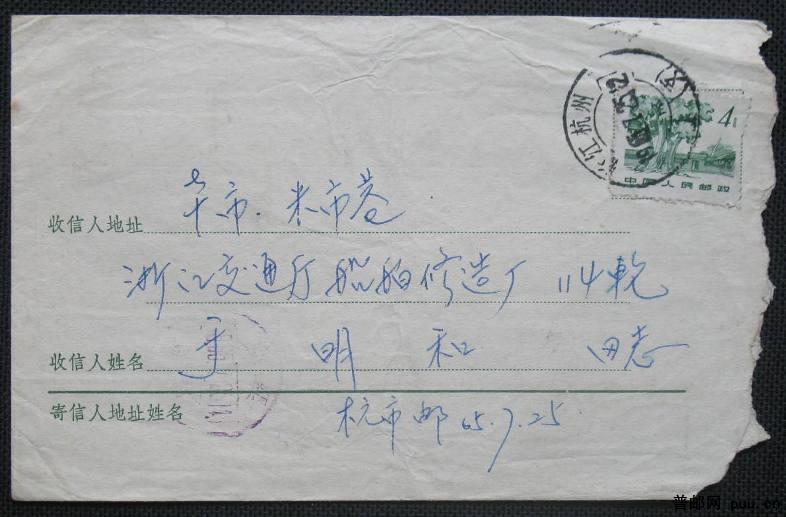 4分
中国人民邮政
浙江杭州
收信人地址 本市.米市巷
浙江交通厅船舶修造厂 114
收信人姓名 明和 同志
寄信人地址姓名 杭市邮 65.7.25
普邮网 puu.cn